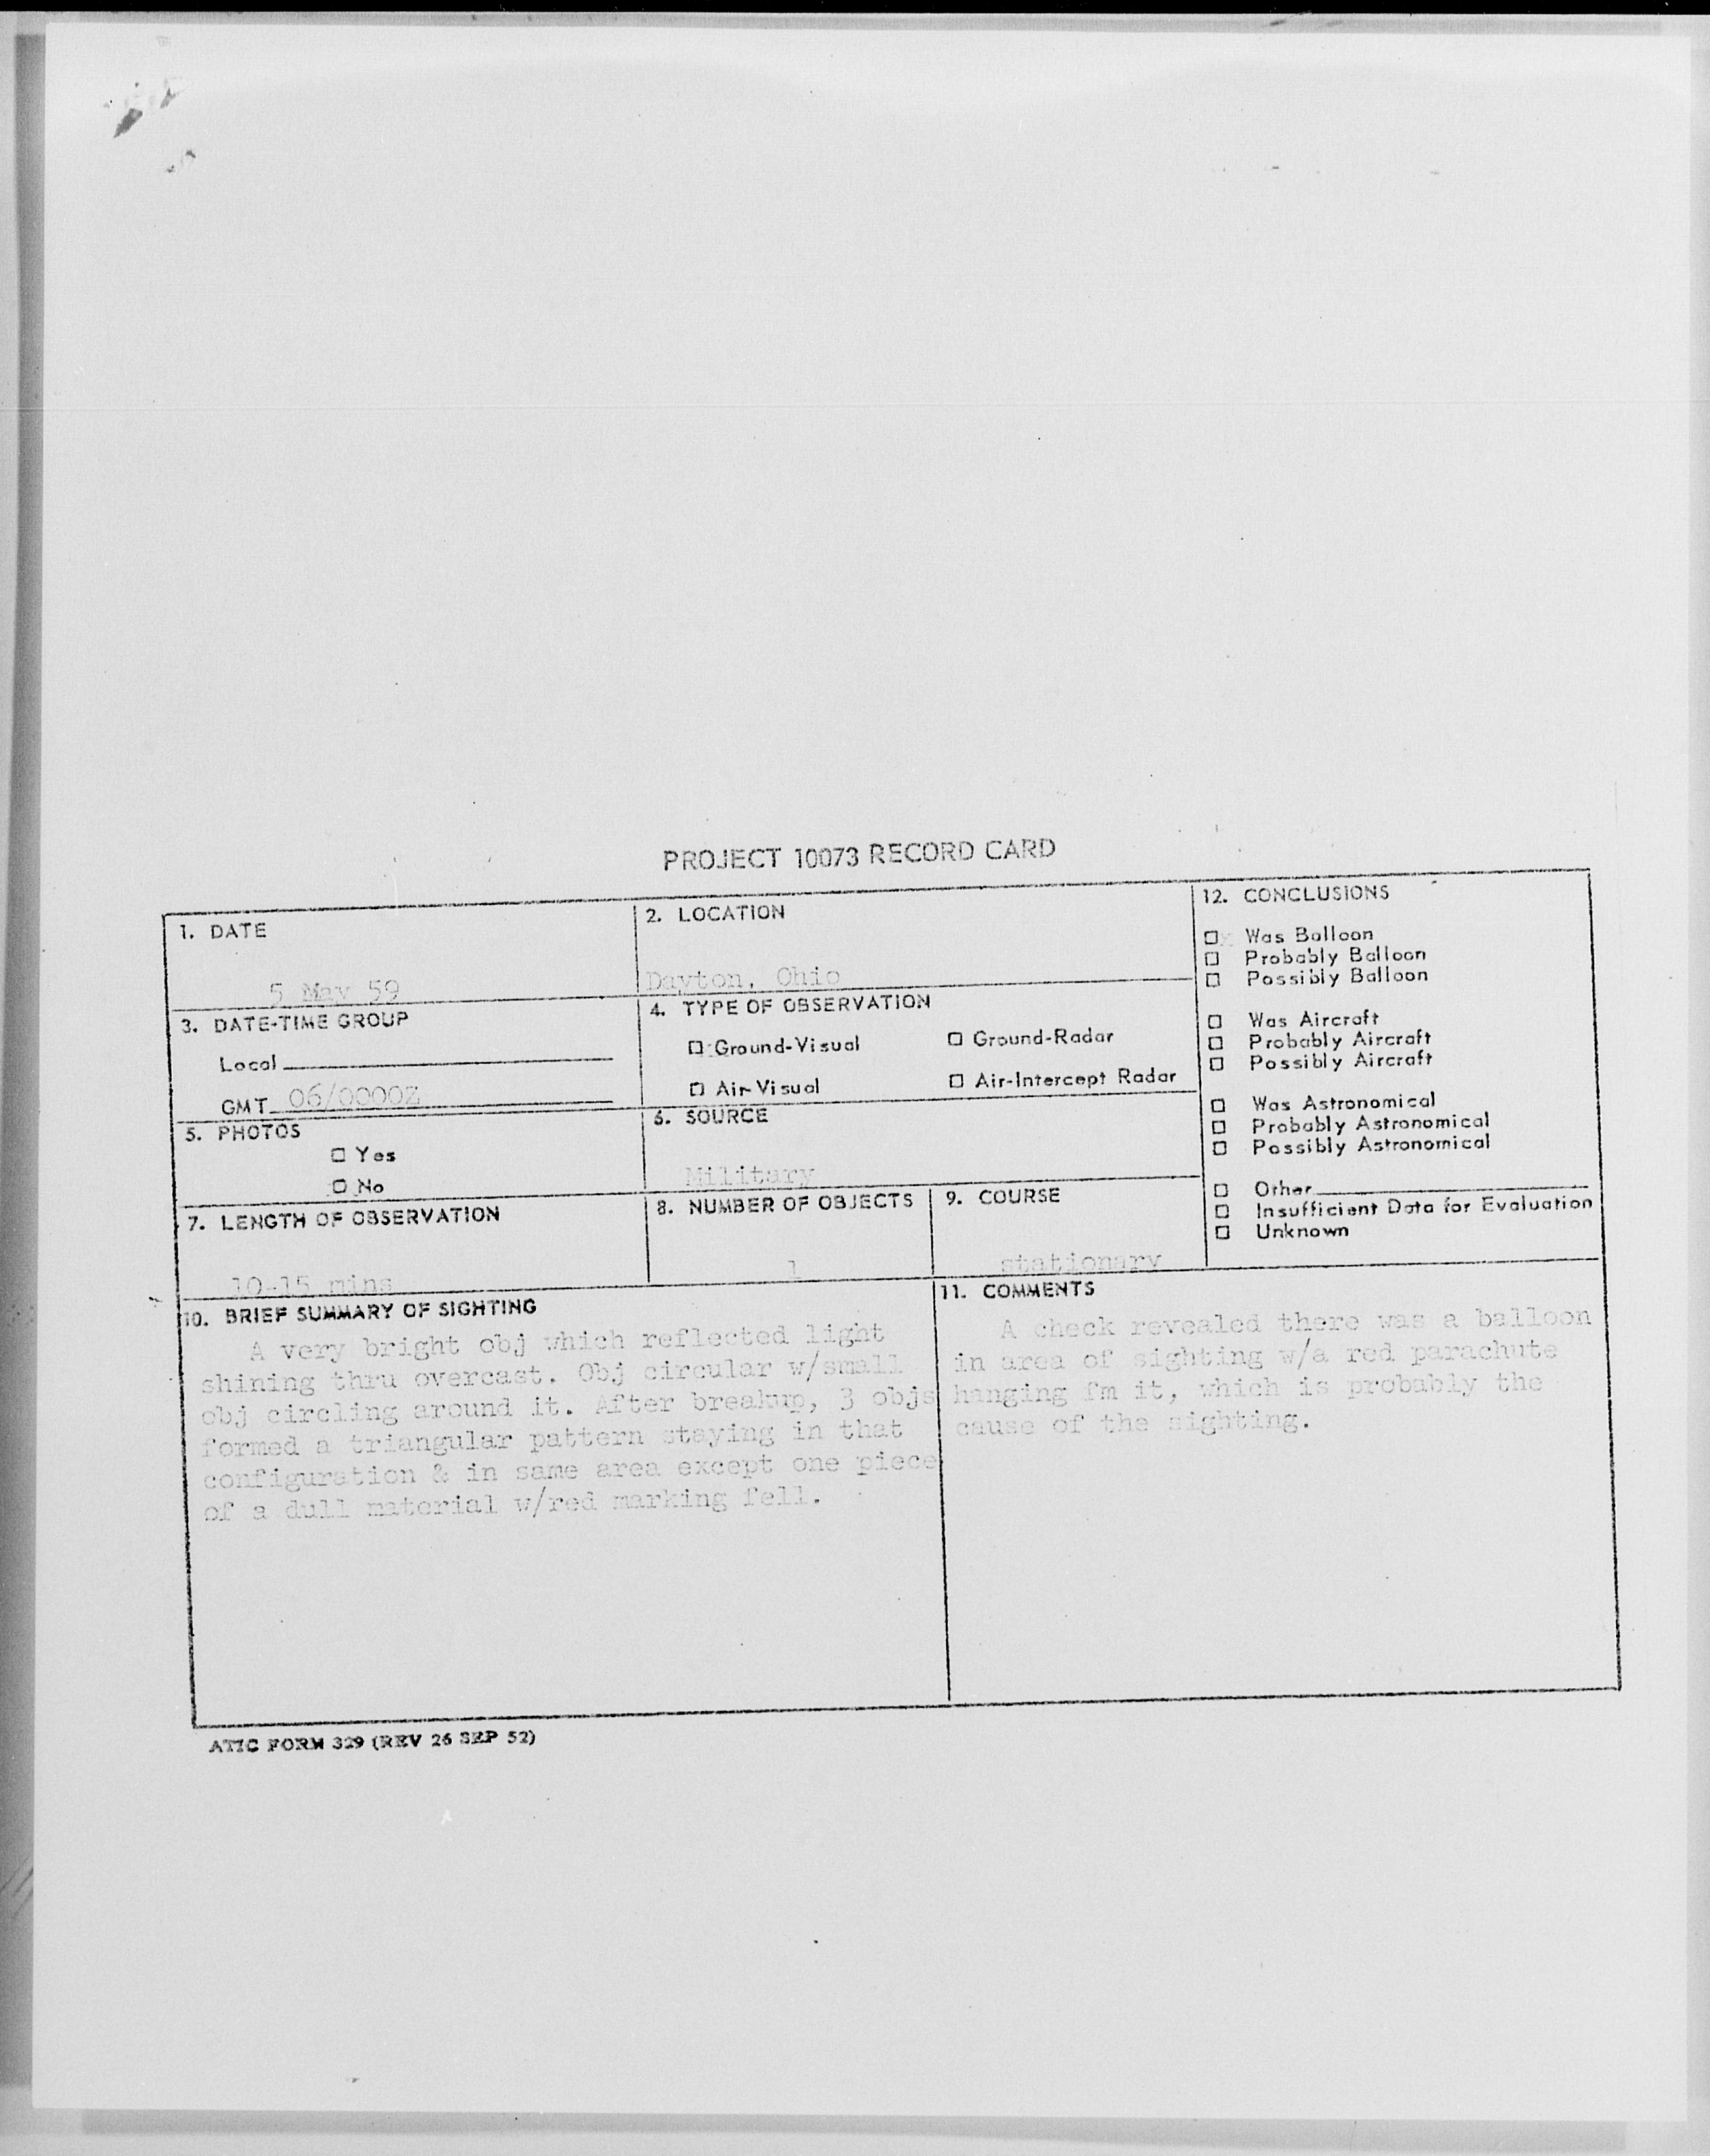 PROJECT 10073 RECORD CARD
1. DATE
5 May 59
2. LOCATION
Dayton, Ohio
3. DATE-TIME GROUP
Local
GMT 06/0000Z
4. TYPE OF OBSERVATION
☐ Ground-Visual ☐ Ground-Radar
☐ Air-Visual ☐ Air-Intercept Radar
5. PHOTOS
☐ Yes
☐ No
6. SOURCE
Military
7. LENGTH OF OBSERVATION
10-15 mins
8. NUMBER OF OBJECTS
1
9. COURSE
stationary
12. CONCLUSIONS
☐ Was Balloon
☐ Probably Balloon
☐ Possibly Balloon
☐ Was Aircraft
☐ Probably Aircraft
☐ Possibly Aircraft
☐ Was Astronomical
☐ Probably Astronomical
☐ Possibly Astronomical
☐ Other
☐ Insufficient Data for Evaluation
☐ Unknown
10. BRIEF SUMMARY OF SIGHTING
A very bright obj which reflected light
shining thru overcast. Obj circular w/small
obj circling around it. After breakup, 3 objs
formed a triangular pattern staying in that
configuration & in same area except one piece
of a dull material w/red marking fell.
11. COMMENTS
A check revealed there was a balloon
in area of sighting w/a red parachute
hanging fm it, which is probably the
cause of the sighting.
ATIC FORM 329 (REV 26 SEP 52)